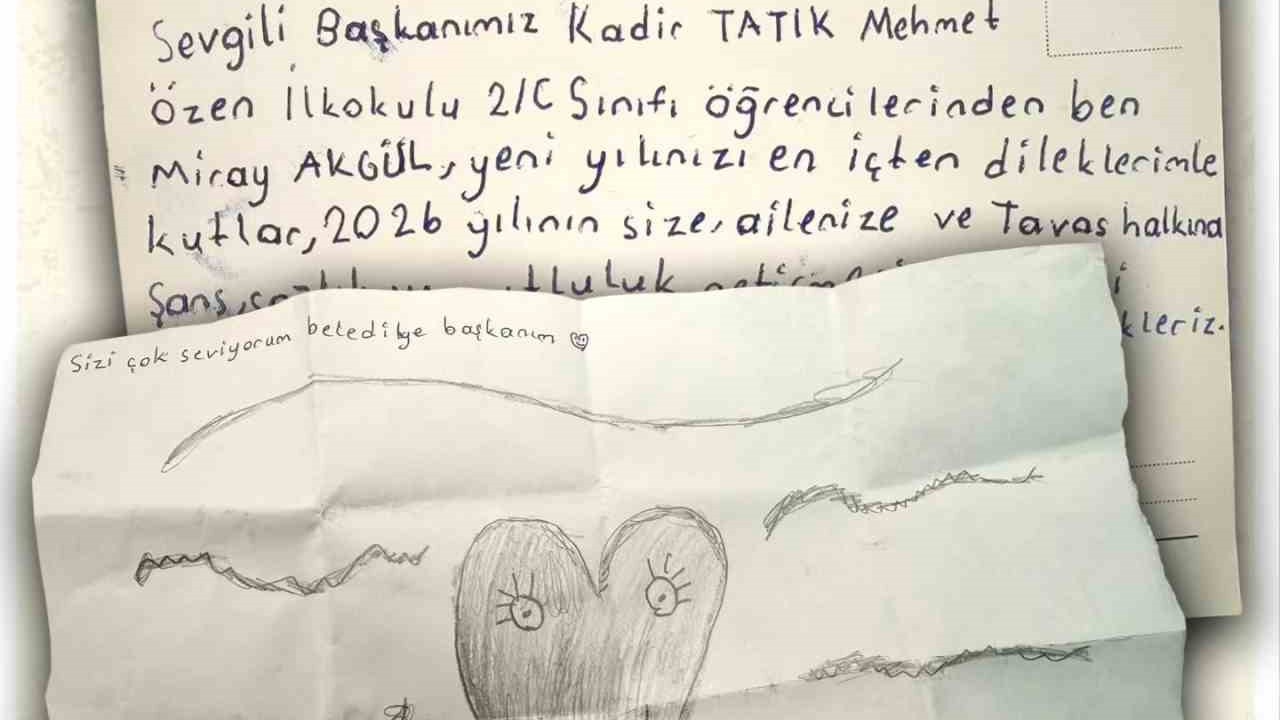 Sevgili Başkanımız Kadir TATIK Mehmet
Özen İlkokulu 2/C Sınıfı öğrencilerinden ben
Miray AKGÜL, yeni yılınızı en içten dileklerimle
kutlar, 2026 yılının size, ailenize ve Tavas halkına
Şans,
kleriz.
Sizi çok seviyorum beledilye başkanım